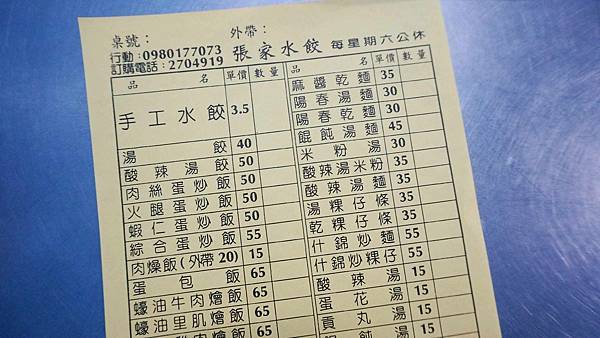 桌號：
外帶：
行動：0980177073
訂購電話：2704919
張家水餃 每星期六公休
品名 單價 數量
手工水餃 3.5
湯餃 40
酸辣湯餃 50
肉絲蛋炒飯 50
火腿蛋炒飯 50
蝦仁蛋炒飯 50
綜合蛋炒飯 55
肉燥飯(外帶20) 15
蛋包飯 65
蠔油牛肉燴飯 65
蠔油里肌燴飯 65
品名 單價 數量
麻醬乾麵 35
陽春湯麵 30
陽春乾麵 30
餛飩湯麵 45
米粉湯 30
酸辣湯米粉 35
酸辣湯麵 35
湯粿仔條 35
乾粿仔條 35
什錦炒麵 55
什錦炒粿仔 55
酸辣湯 15
蛋花湯 15
貢丸湯 15